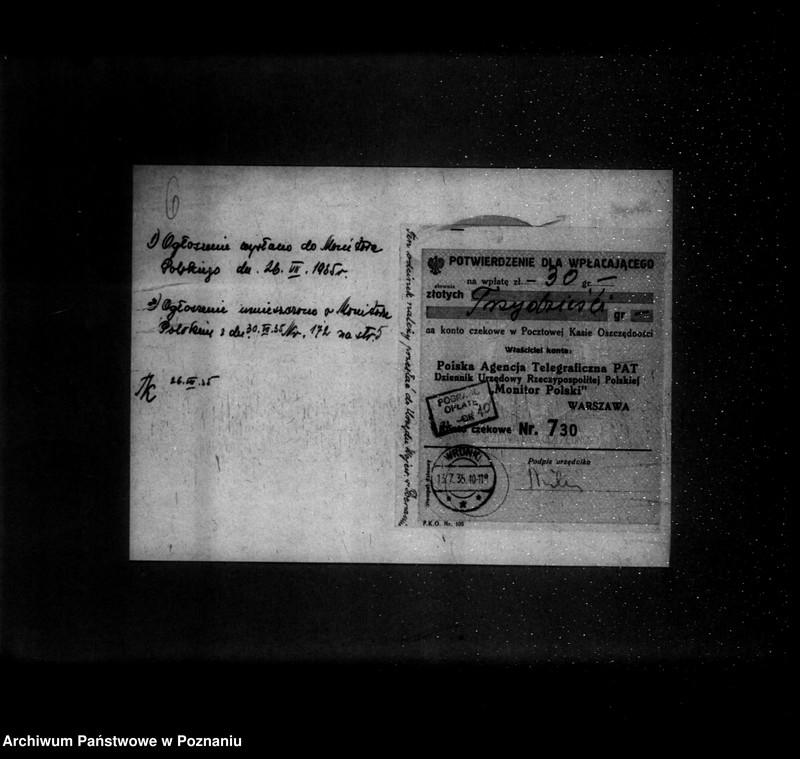 6
1) Ogłoszenie wysłano do Monitora
Polskiego dn. 26. VII. 1935 r.
2) Ogłoszenie umieszczono w Monitorze
Polskim z dn. 30. VII. 35 Nr. 172 na str. 5
26. VII. 35
Ten odcinek należy przesłać do Urzędu Wojew. w Poznaniu
POTWIERDZENIE DLA WPŁACAJĄCEGO
na wpłatę zł. – 30 gr.
słownie
złotych Trzydzieści gr
na konto czekowe w Pocztowej Kasie Oszczędności
Właściciel konta:
Polska Agencja Telegraficzna PAT
Dziennik Urzędowy Rzeczypospolitej Polskiej
"Monitor Polski"
WARSZAWA
POBRANO
OPŁATĘ
czekowe Nr. 730
WRONKI
13.7.35.10-11
Podpis urzędnika
P.K.O. Nr. 105
Archiwum Państwowe w Poznaniu